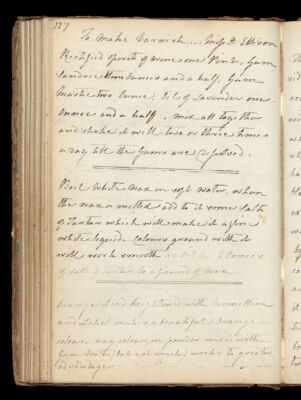 127
To Make Varnish.... Miss D. Ellison
Rectified spirits of wine one Pint, Gum
Sandric three Ounces and a half, Gum
Mastic two Ounces, Oil of Lavender one
Ounce and a half, mix all together
and shake it well two or three times
a day till the Gums are disolved.
Boil White wax in soft water, when
the wax is milted add to it some Salts
of Tartar which will make it a fine
white liquid. Colours ground with it
will work smooth
of salts of tartar to a pound of wax
Orange Lead heightened with Vermillion
and Lake makes a beautiful Orange
colour, any colour in powder mixed with
Gum Water (but not much) works to great
advantage